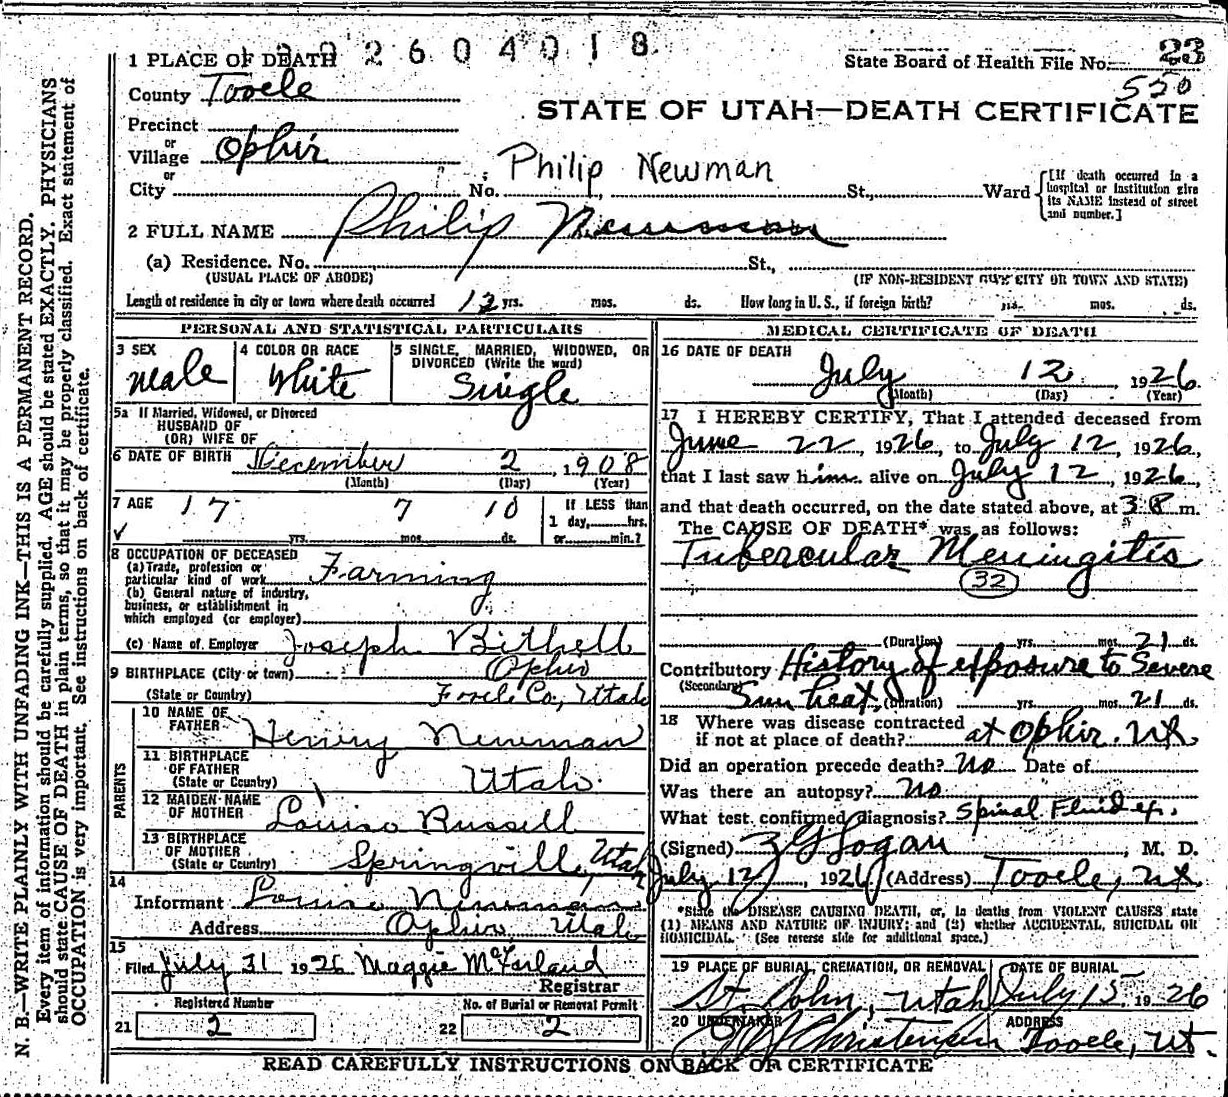 2604018
1 PLACE OF DEATH
State Board of Health File No. 23
550
County Tooele
STATE OF UTAH—DEATH CERTIFICATE
Precinct
or
Village Ophir
or
City No. Philip Newman St., Ward
[If death occurred in a hospital or institution give its NAME instead of street and number.]
2 FULL NAME Philip Newman
(a) Residence. No. St.,
(USUAL PLACE OF ABODE) (IF NON-RESIDENT GIVE CITY OR TOWN AND STATE)
Length of residence in city or town where death occurred yrs. mos. ds. How long in U. S., if foreign birth? yrs. mos. ds.
PERSONAL AND STATISTICAL PARTICULARS
3 SEX 4 COLOR OR RACE 5 SINGLE, MARRIED, WIDOWED, OR
DIVORCED (Write the word)
Male White Single
5a If Married, Widowed, or Divorced
HUSBAND OF
(OR) WIFE OF
6 DATE OF BIRTH December 2, 1908
(Month) (Day) (Year)
7 AGE 17 7 10 If LESS than
yrs. mos. ds. 1 day, hrs.
or min.?
8 OCCUPATION OF DECEASED
(a) Trade, profession or
particular kind of work Farming
(b) General nature of industry,
business, or establishment in
which employed (or employer)
(c) Name of Employer Joseph Bithell
9 BIRTHPLACE (City or town) Ophir
(State or Country) Tooele Co, Utah
PARENTS
10 NAME OF
FATHER Henry Newman
11 BIRTHPLACE
OF FATHER
(State or Country) Utah
12 MAIDEN NAME
OF MOTHER Louisa Russell
13 BIRTHPLACE
OF MOTHER
(State or Country) Springville, Utah
14
Informant Louisa Newman
Address Ophir Utah
15
Filed July 31 1926 Maggie McFarland
Registrar
Registered Number No. of Burial or Removal Permit
21 2 22 2
MEDICAL CERTIFICATE OF DEATH
16 DATE OF DEATH
July 12, 1926
(Month) (Day) (Year)
17 I HEREBY CERTIFY, That I attended deceased from
June 22, 1926, to July 12, 1926,
that I last saw him alive on July 12, 1926,
and that death occurred, on the date stated above, at m.
The CAUSE OF DEATH* was as follows:
Tubercular Meningitis
32
(Duration) yrs. mos. 21 ds.
Contributory History of exposure to Severe
(Secondary) Sun heat. (Duration) yrs. mos. 21 ds.
18 Where was disease contracted
if not at place of death? at Ophir. Ut
Did an operation precede death? No Date of
Was there an autopsy? No
What test confirmed diagnosis? Spinal Fluid ex.
(Signed) Logan, M. D.
July 12, 1926 (Address) Tooele, Ut
*State the DISEASE CAUSING DEATH, or, in deaths from VIOLENT CAUSES state
(1) MEANS AND NATURE OF INJURY; and (2) whether ACCIDENTAL, SUICIDAL OR
HOMICIDAL. (See reverse side for additional space.)
19 PLACE OF BURIAL, CREMATION, OR REMOVAL DATE OF BURIAL
St. John, Utah July 15 1926
20 UNDERTAKER ADDRESS
Christensen Tooele, Ut.
READ CAREFULLY INSTRUCTIONS ON BACK OF CERTIFICATE
N. B.—WRITE PLAINLY WITH UNFADING INK—THIS IS A PERMANENT RECORD.
Every item of information should be carefully supplied. AGE should be stated EXACTLY. PHYSICIANS
should state CAUSE OF DEATH in plain terms, so that it may be properly classified. Exact statement of
OCCUPATION is very important. See instructions on back of certificate.